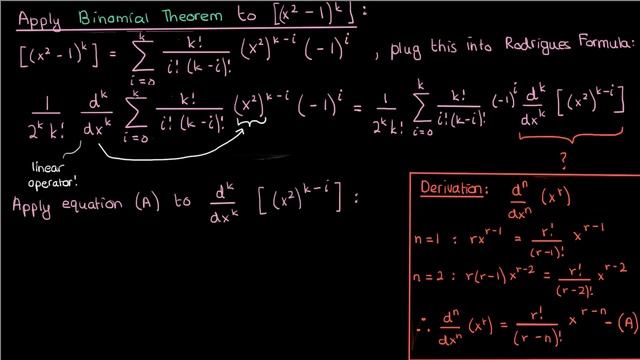 Apply Binomial Theorem to [(x² - 1)ᵏ] :
[(x² - 1)ᵏ] = ∑_{i=0}^{k} k!/(i!(k-i)!) (x²)^{k-i} (-1)^i , plug this into Rodrigues Formula:
1/(2ᵏ k!) dᵏ/dxᵏ ∑_{i=0}^{k} k!/(i!(k-i)!) (x²)^{k-i} (-1)^i = 1/(2ᵏ k!) ∑_{i=0}^{k} k!/(i!(k-i)!) (-1)^i dᵏ/dxᵏ [(x²)^{k-i}]
linear
operator!
?
Apply equation (A) to dᵏ/dxᵏ [(x²)^{k-i}] :
Derivation: dⁿ/dxⁿ (xʳ)
n=1 : rx^{r-1} = r!/(r-1)! x^{r-1}
n=2 : r(r-1)x^{r-2} = r!/(r-2)! x^{r-2}
∴ dⁿ/dxⁿ (xʳ) = r!/(r-n)! x^{r-n} - (A)